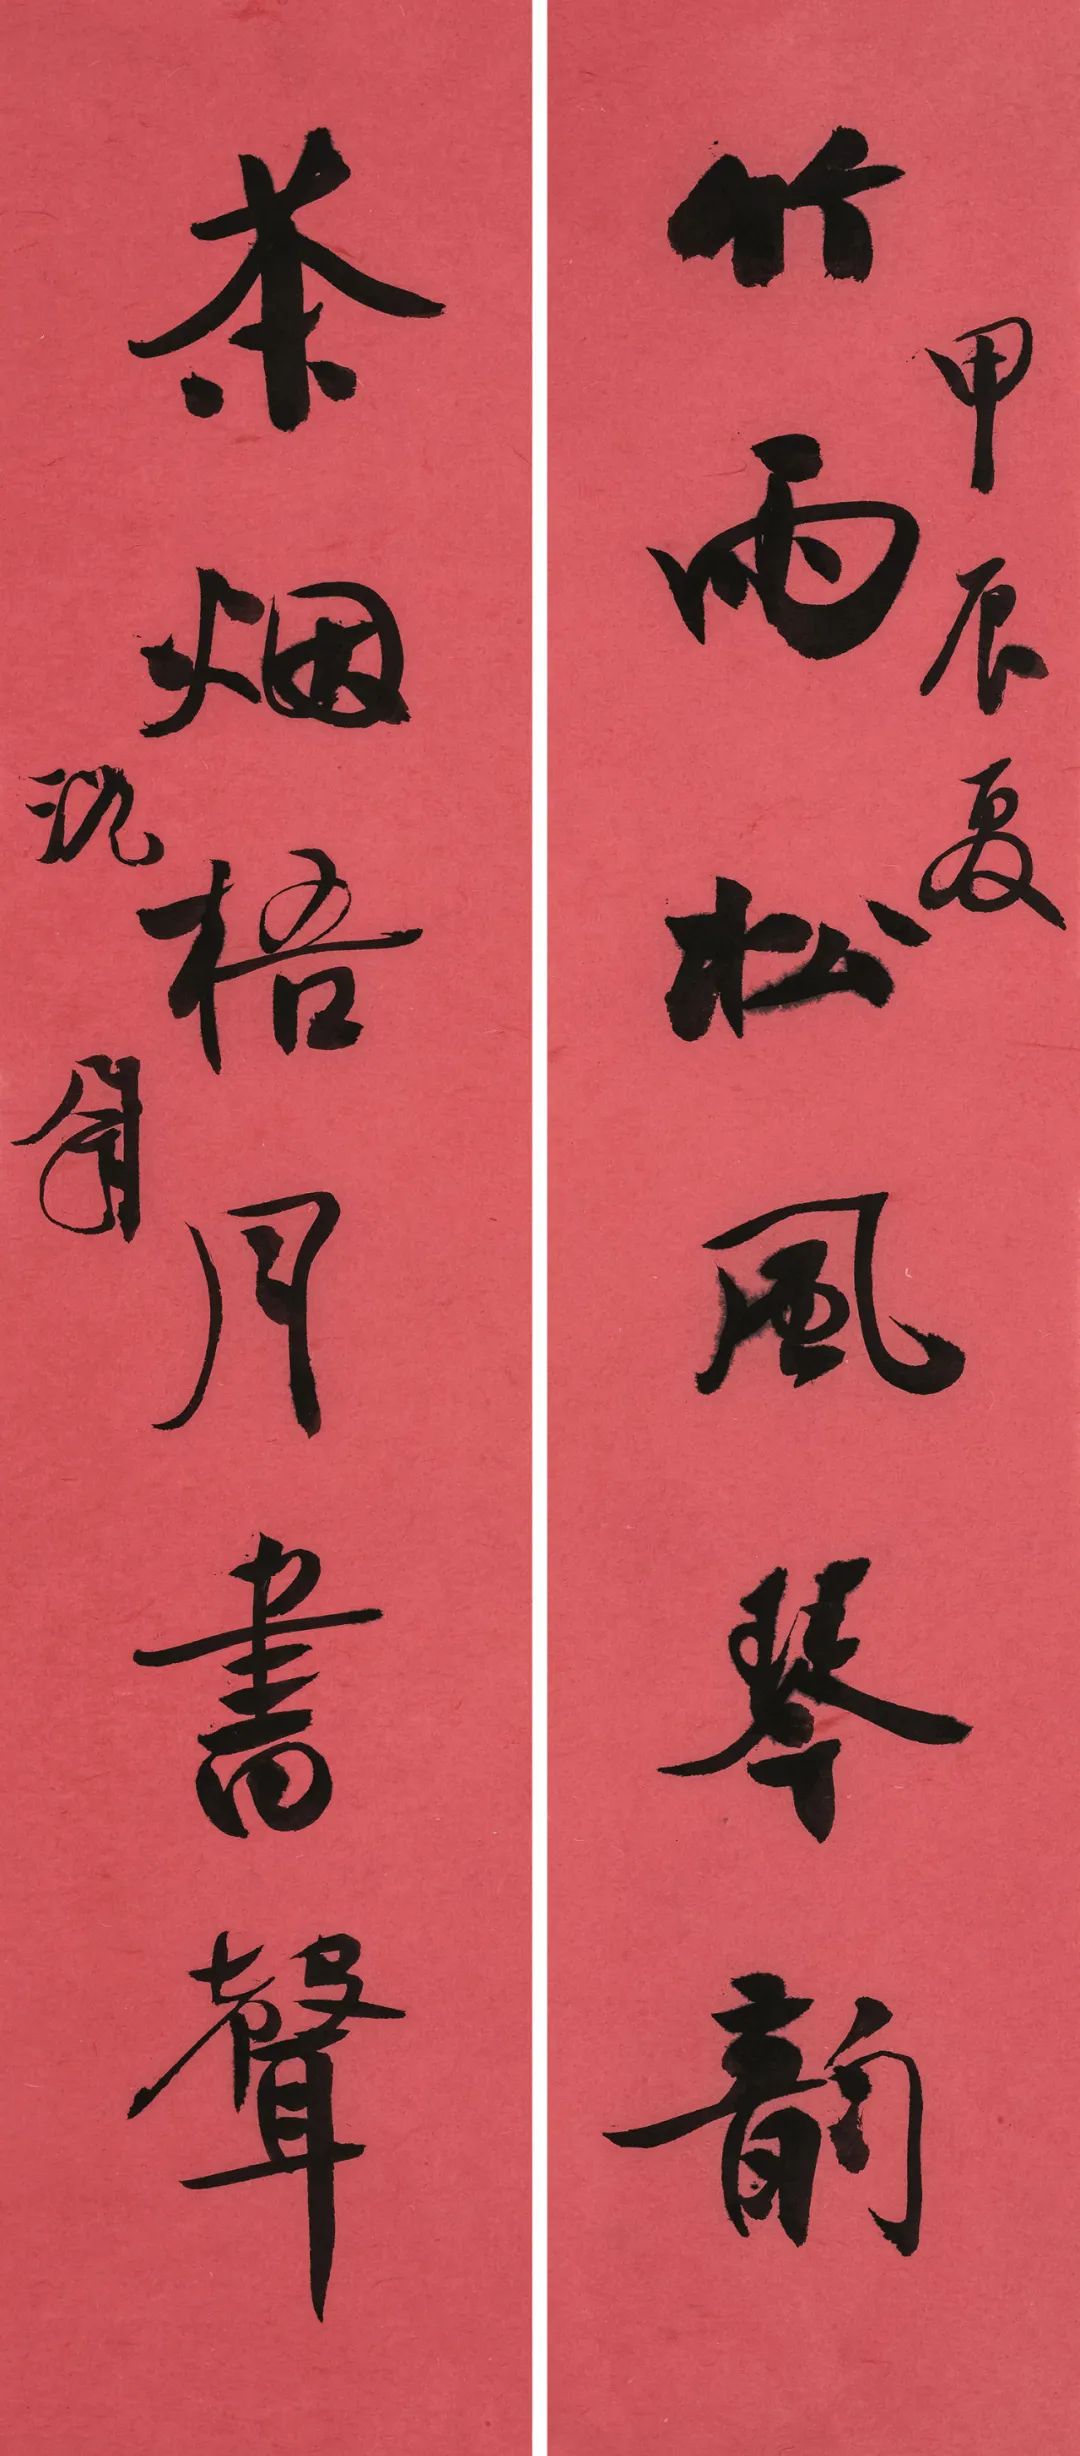 竹雨松風琴韵
甲辰夏
茶烟梧月書聲
沈